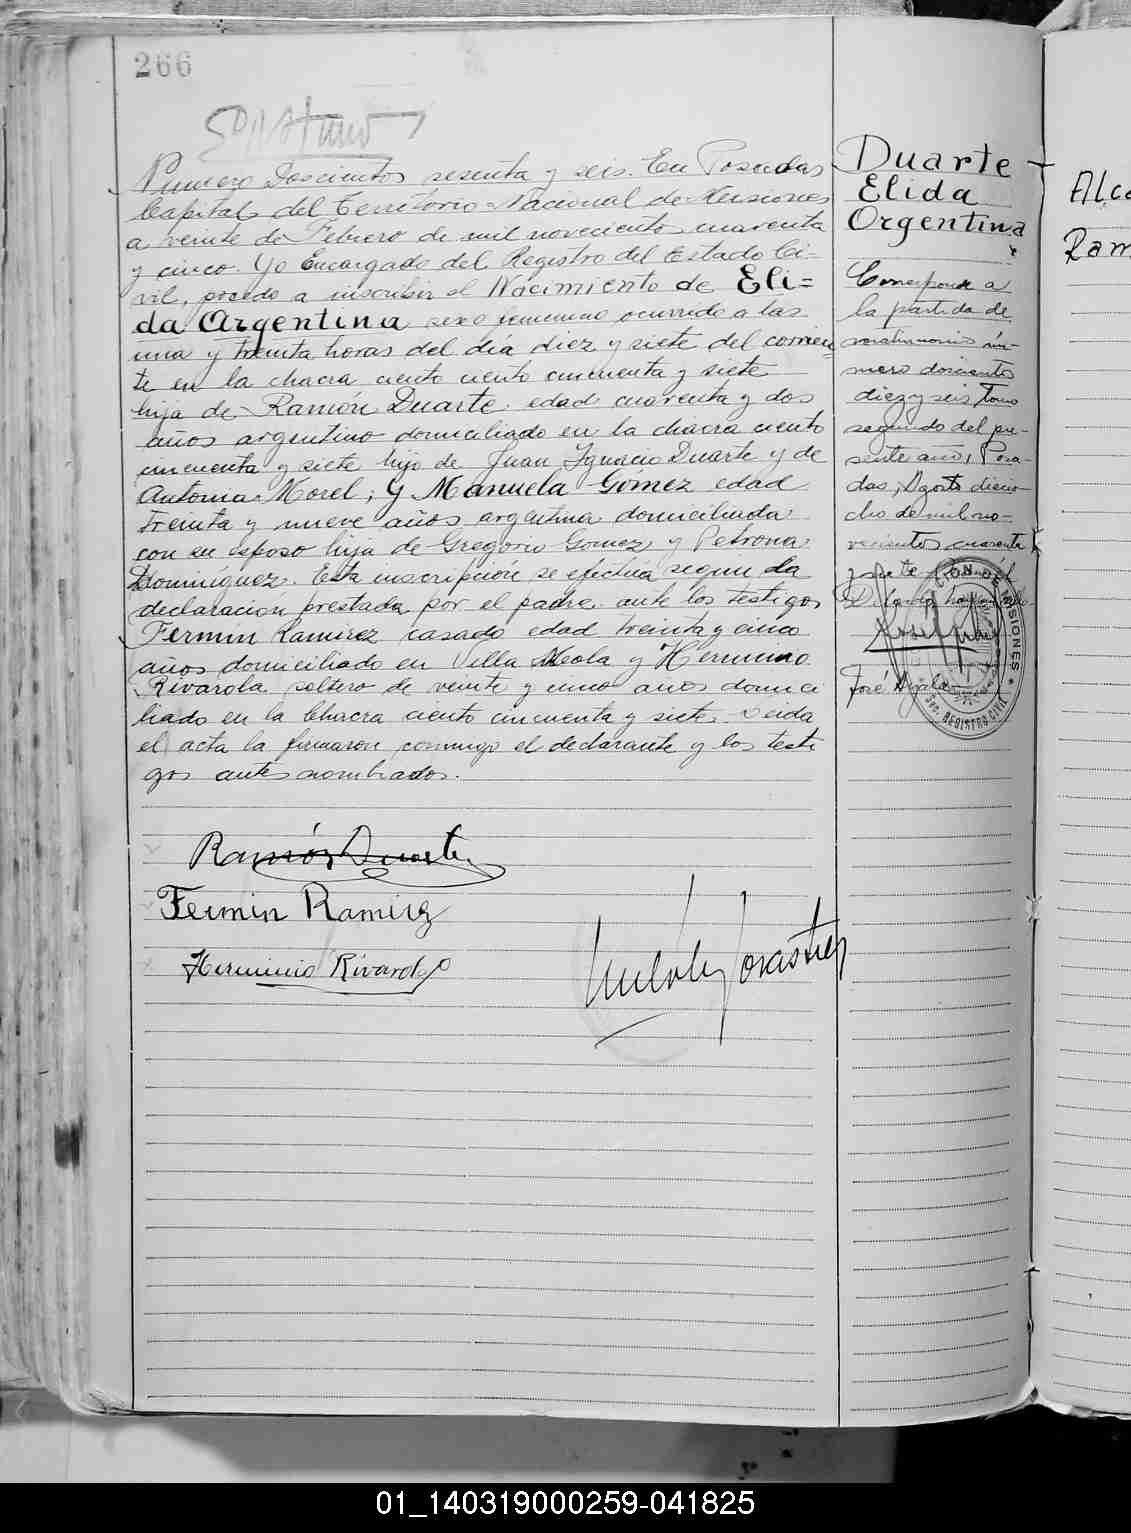 266
Numero Doscientos sesenta y seis. En Posadas
Capital del Território Nacional de Misiones
a veinte de Febrero de mil novecientos cuarenta
y cinco. Yo Encargado del Registro del Estado Ci-
vil, procedo a inscribir el Nacimiento de Eli=
da Argentina sexo femenino ocurrido a las
una y treinta horas del dia diez y siete del corrien
te en la chacra ciento ciento cincuenta y siete
hija de Ramón Duarte edad cuarenta y dos
años argentino domiciliado en la chacra ciento
cincuenta y siete hijo de Juan Ignacio Duarte y de
Antonia Morel; y Manuela Gómez edad
treinta y nueve años argentina domiciliada
con su esposo hija de Gregorio Gomez y Petrona
Domínguez. Esta inscripción se efectúa segun la
declaracion prestada por el padre ante los testigos
Fermin Ramirez casado edad treinta y cinco
años domiciliado en Villa Meola y Herminio
Rivarola soltero de veinte y cinco años domici
liado en la Chacra ciento cincuenta y siete. Leida
el acta la firmaron conmigo el declarante y los testi
gos antes nombrados.
Ramón Duarte
Fermin Ramirez
Herminio Rivarola
Duarte
Elida
Argentina
Corresponde a
la partida de
matrimonio nú-
mero doscientos
diez y seis tomo
segundo del pre-
sente año, Posa-
das, Agosto diecio-
cho de mil no-
vecientos cuarenta
y siete
José Ayala
CION DE MISIONES
Sec. REGISTRO CIVIL
Alca
Ram
01_140319000259-041825